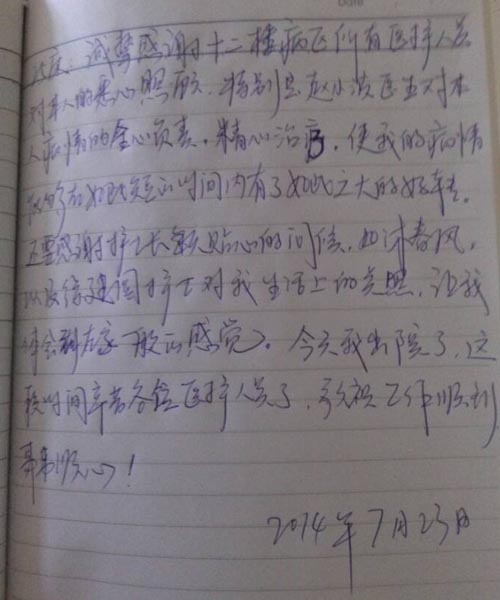 Date
诚挚感谢十二楼病区所有医护人员
对本人的悉心照顾,特别是赵小滨医生对本
人病情的全心负责,精心治疗,使我的病情
能够在如此短的时间内有了如此之大的好转。
还要感谢护士长每天贴心的问候,如沐春风,
以及建国护士对我生活上的关照,让我
体会到在家一般的感觉。今天我出院了,这
段时间辛苦各位医护人员了,祝工作顺利
事事顺心!
2014年7月23日